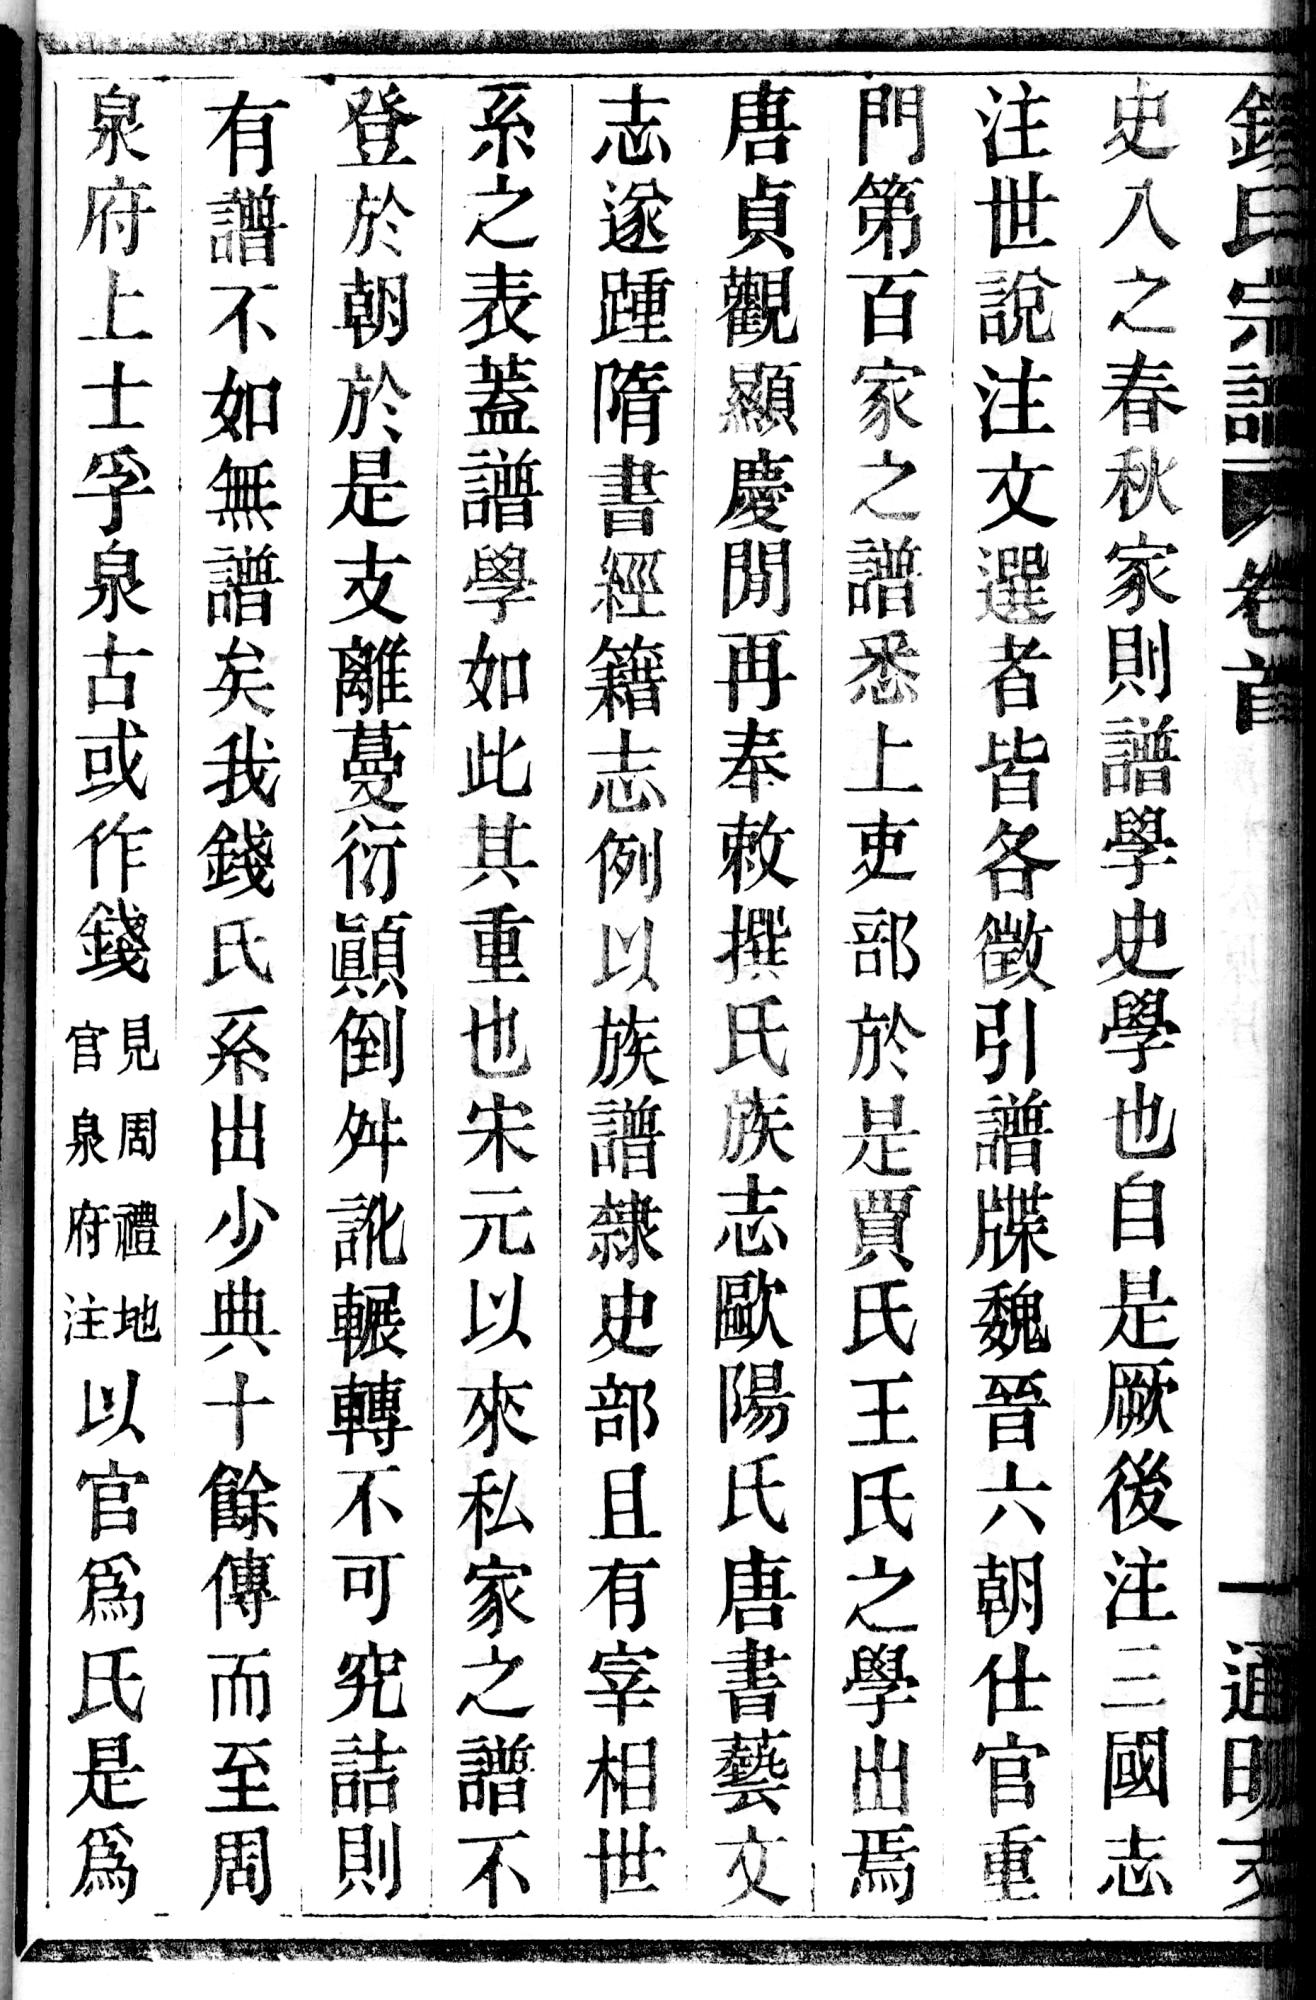 錢氏宗譜 卷首 一 通明支
史入之春秋家則譜學史學也自是厥後注三國志
注世說注文選者皆各徵引譜牒魏晉六朝仕官重
門第百家之譜悉上吏部於是賈氏王氏之學出焉
唐貞觀顯慶閒再奉敕撰氏族志歐陽氏唐書藝文
志遂踵隋書經籍志例以族譜隸史部且有宰相世
系之表蓋譜學如此其重也宋元以來私家之譜不
登於朝於是支離蔓衍顚倒舛訛輾轉不可究詰則
有譜不如無譜矣我錢氏系出少典十餘傳而至周
泉府上士孚泉古或作錢見周禮地官泉府注以官爲氏是爲